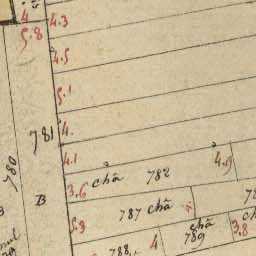 4
4.3
5.8
4.5
5.1
4.
781
780
4.1
châ
782
4.9
3.6
B
787 châ
5.3
châ
789
3.8
4
788